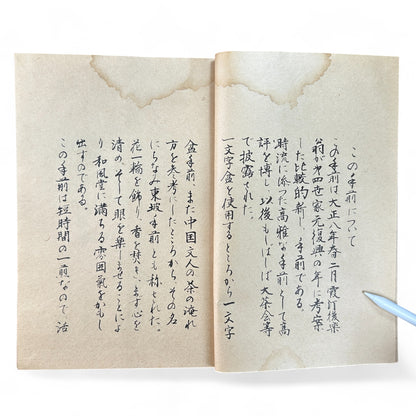 この手前について
この手前は大正八年春二月霞汀後楽
翁が第四世家元復興の年に考案
した比較的新しい手前である。
時流に添った高雅な手前として高
評を博し、以後もしばしば大茶会等
で披露された。
一文字盆を使用するところから一文字
盆手前、また中国文人の茶の淹れ
方を参考にしたところからその名
にちなみ東坡手前とも称された。
花一輪を飾り香を焚き、まず心を
清め、そして眼を楽しませることによ
り和風堂に満ちる雰囲気をかもし
出すのである。
この手前は短時間の一煎なので、活